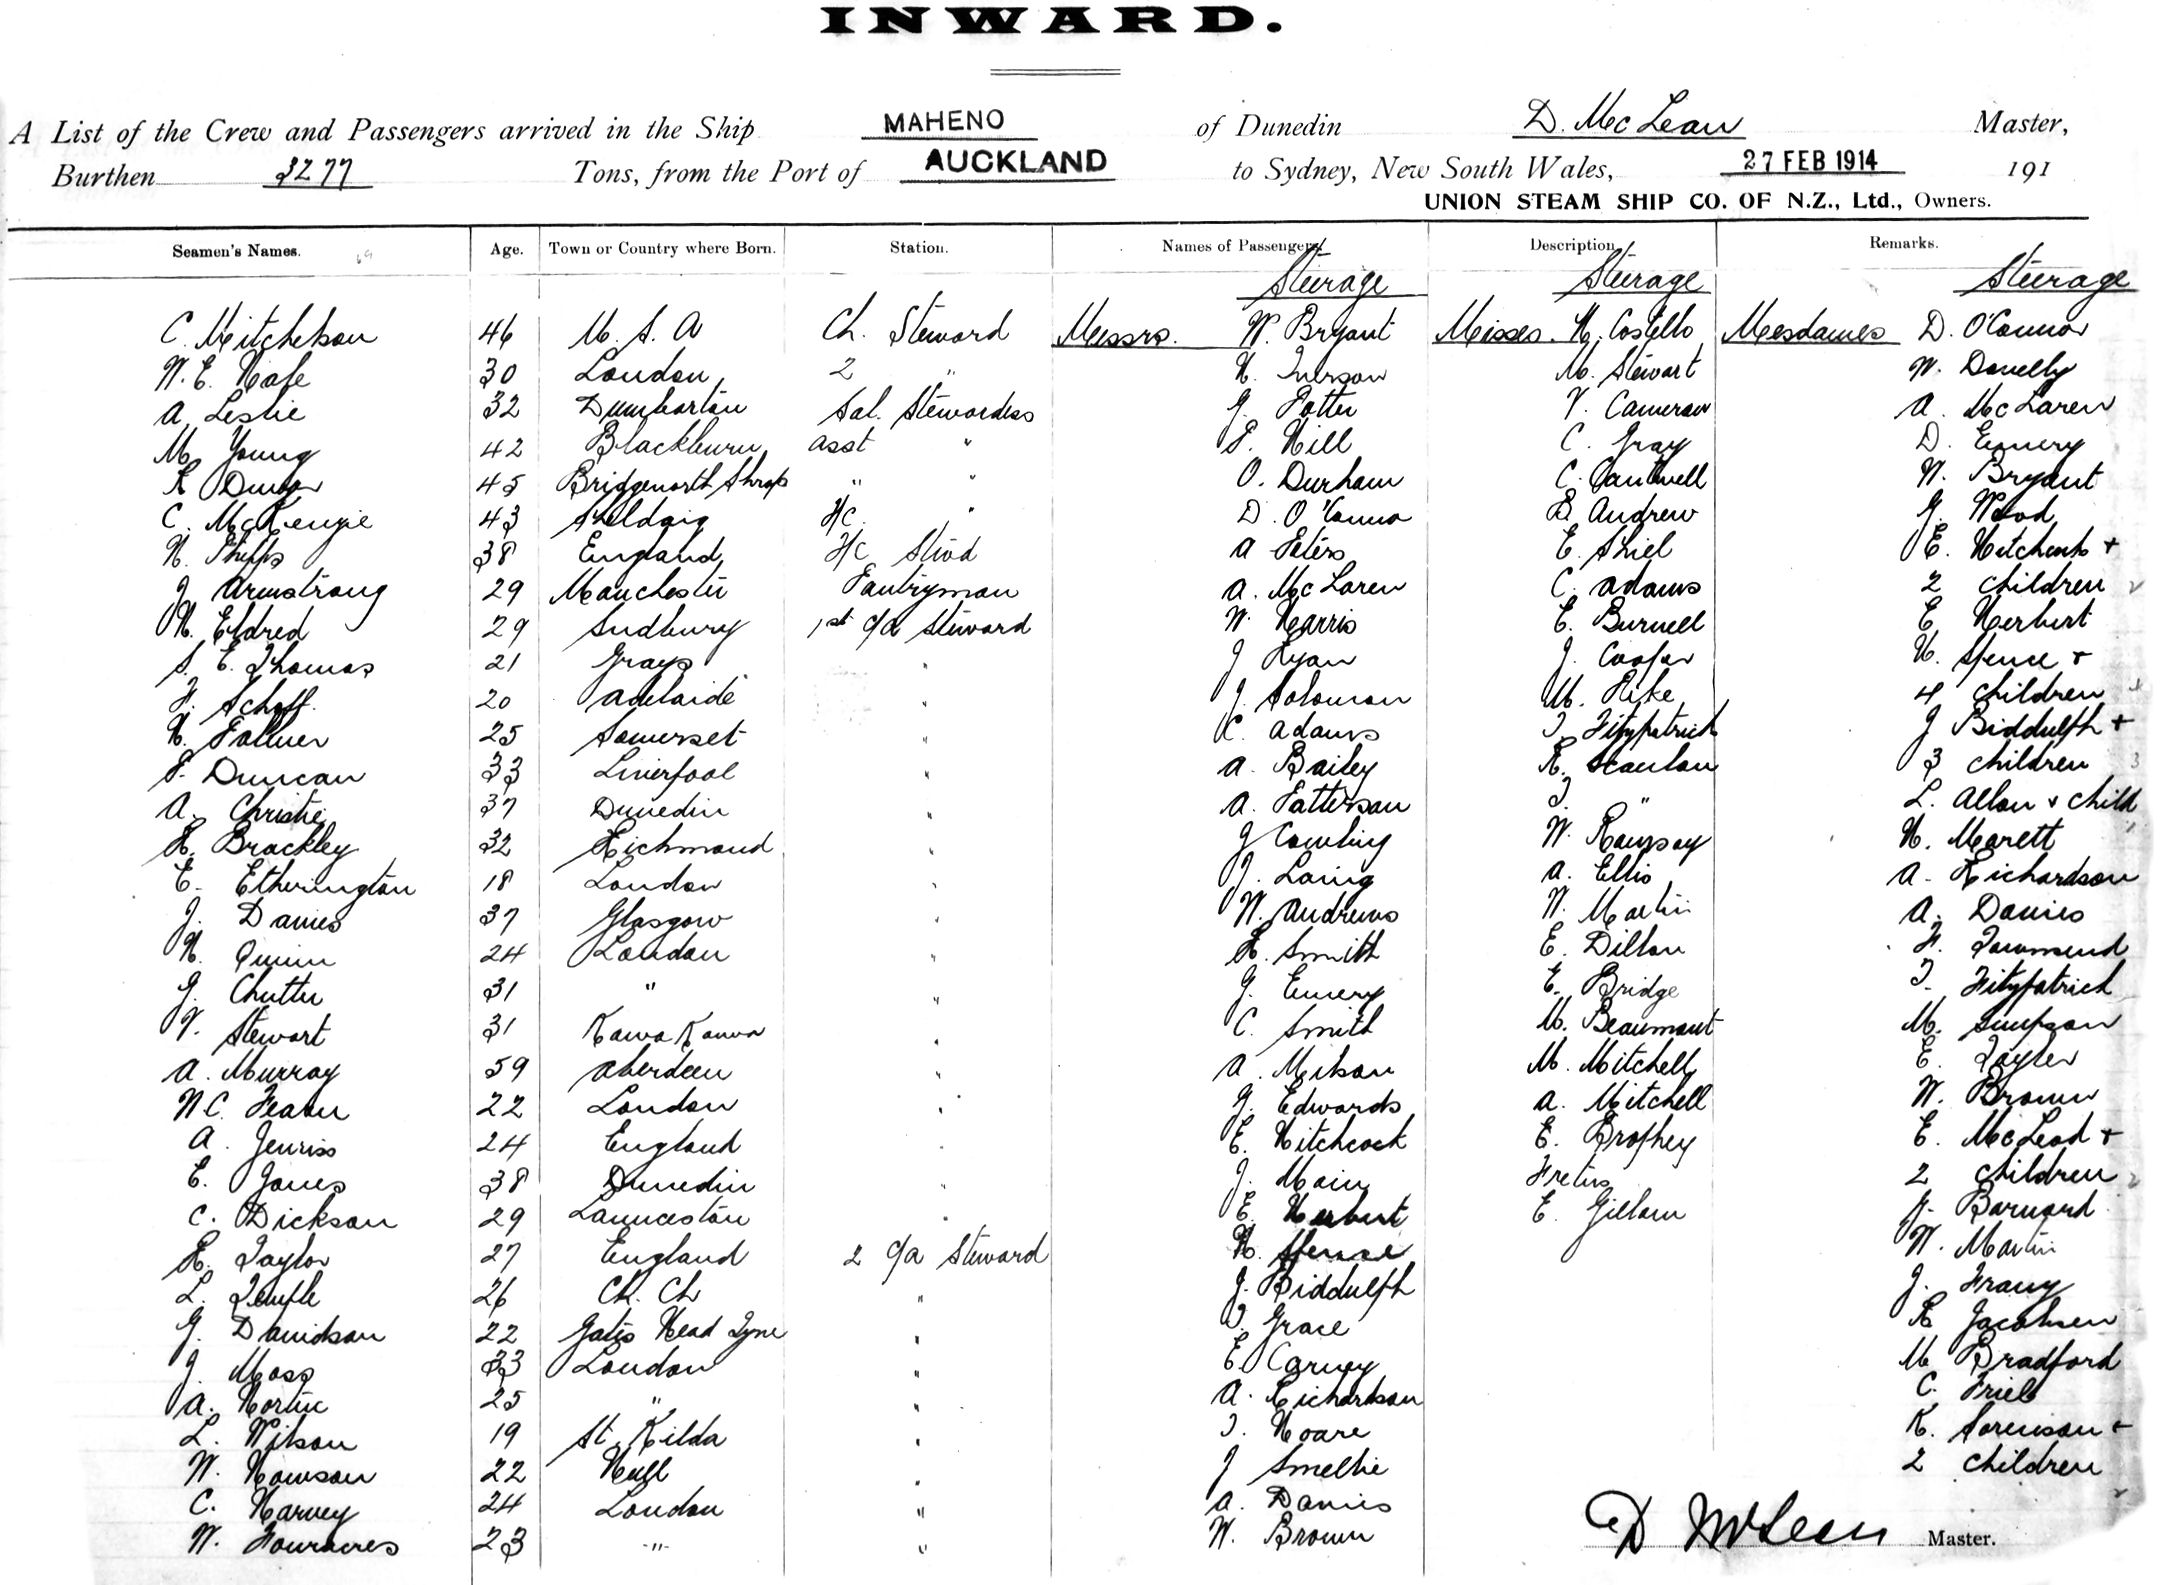 INWARD.
A List of the Crew and Passengers arrived in the Ship MAHENO of Dunedin D. McLean Master,
Burthen 3277 Tons, from the Port of AUCKLAND to Sydney, New South Wales, 27 FEB 1914 191
UNION STEAM SHIP CO. OF N.Z., Ltd., Owners.
Seamen's Names. Age. Town or Country where Born. Station. Names of Passengers Description Remarks.
Steerage Steerage Steerage
C. Mitchelson 46 U. S. A Ch. Steward Messrs. W. Bryant Misses. N. Costello Mesdames D. O'Connor
W. E. 30 London 2 " H. Iverson M. Stewart W. Donelly
A Leslie 32 Dumbarton Sal. Stewardess G. Potter V. Cameron A. McLaren
M. Young 42 Blackburn asst " P. Hill C. Gray D. Emery
R 45 Bridgenorth Shrops " " O. Durham C. Cantwell W. Bryant
C. McKenzie 43 Shieldaig F/c. " D. O'Conno B. Andrew G. Wood
H. Phipps 38 England F/c Stwd A Peters E. Shiel E. Hitchcock +
J Armstrong 29 Manchester Pantryman A. McLaren C. Adams 2 children 2
H. Eldred 29 Sudbury 1st c/a Steward W. Harris E. Burnell E Herbert
S. E. Thomas 21 Grays " J Ryan J. Cooper H. Spence +
F. Schoff. 20 Adelaide " J. Solomon M. Pike 4 children 4
H. Palmer 25 Somerset " C. Adams T. Fitzpatrick J Biddulph +
P. Duncan 33 Liverpool " A. Bailey R. Scanlan 3 children 3
A. Christie 37 Dunedin " A. Patterson T " L. Allan + child
H. Brackley 32 Richmond " J Cowling W. Ramsay H. Marett
E. Etherington 18 London " J. Laing A. Ellis A. Richardson
J. Davies 37 Glasgow " W. Andrews W. Martin A. Davies
H. Quinn 24 London " H. Smith E. Dillon F. Townsend
G. Chutter 31 " " G. Emery E. Bridge T. Fitzpatrick
V. Stewart 31 Kawa Kawa " C. Smith M. Beaumont M. Simpson
A. Murray 59 Aberdeen " A. M. Mitchell E. Taylor
W C. Fearn 22 London " G. Edwards A. Mitchell W. Brown
A. Jenniss 24 England " E. Hitchcock E. Brophey E. McLeod +
E. Jones 38 Dunedin " J. Main 2 children 2
C. Dickson 29 Launceston " E. Herbert E. Gillam Barnard
R. Taylor 27 England 2 c/a Steward H. Spence W. Martin
L. Temple 26 Ch. Ch " J. Biddulph J. Franz
G. Davidson 22 Gates Head Tyne " Grace R Jacobsen
J. Moss 33 London " E. Carney M Bradford
A. 25 " " A. Richardson C. Friel
L. Wilson 19 St. Kilda " T. Hoare K. Sorenson +
W. Howson 22 Hull " J Smellie 2 children
C. Harvey 24 London " A. Davies
W. Fouracres 23 " " W. Brown
D McLean Master.